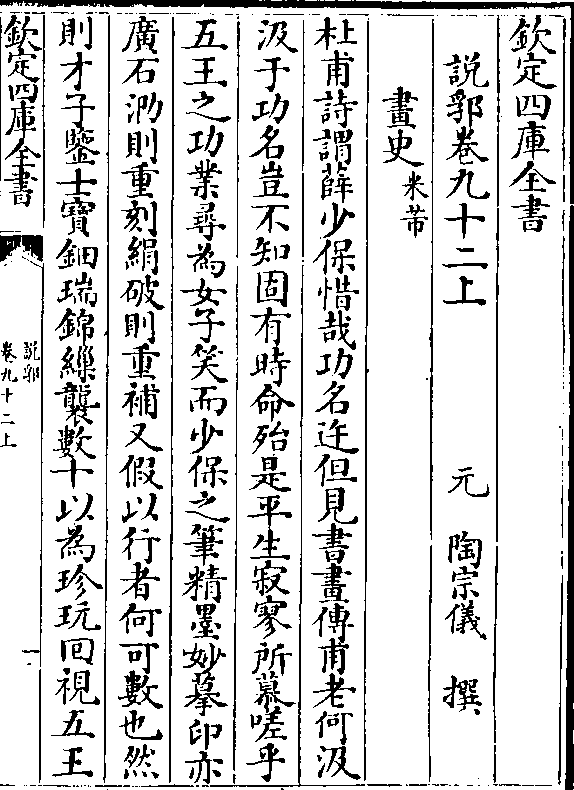 欽定四庫全書
說郛卷九十二上
元 陶宗儀 撰
畫史 米芾
杜甫詩謂薛少保惜哉功名迕但見書畫傳甫老何汲
汲于功名豈不知固有時命殆是平生寂寥所慕嗟乎
五王之功業尋為女子笑而少保之筆精墨妙摹印亦
廣石泐則重刻絹破則重補又假以行者何可數也然
則才子鑒士寶鈿瑞錦繅襲數十以為珍玩回視五王
欽定四庫全書
說郛
卷九十二上
一